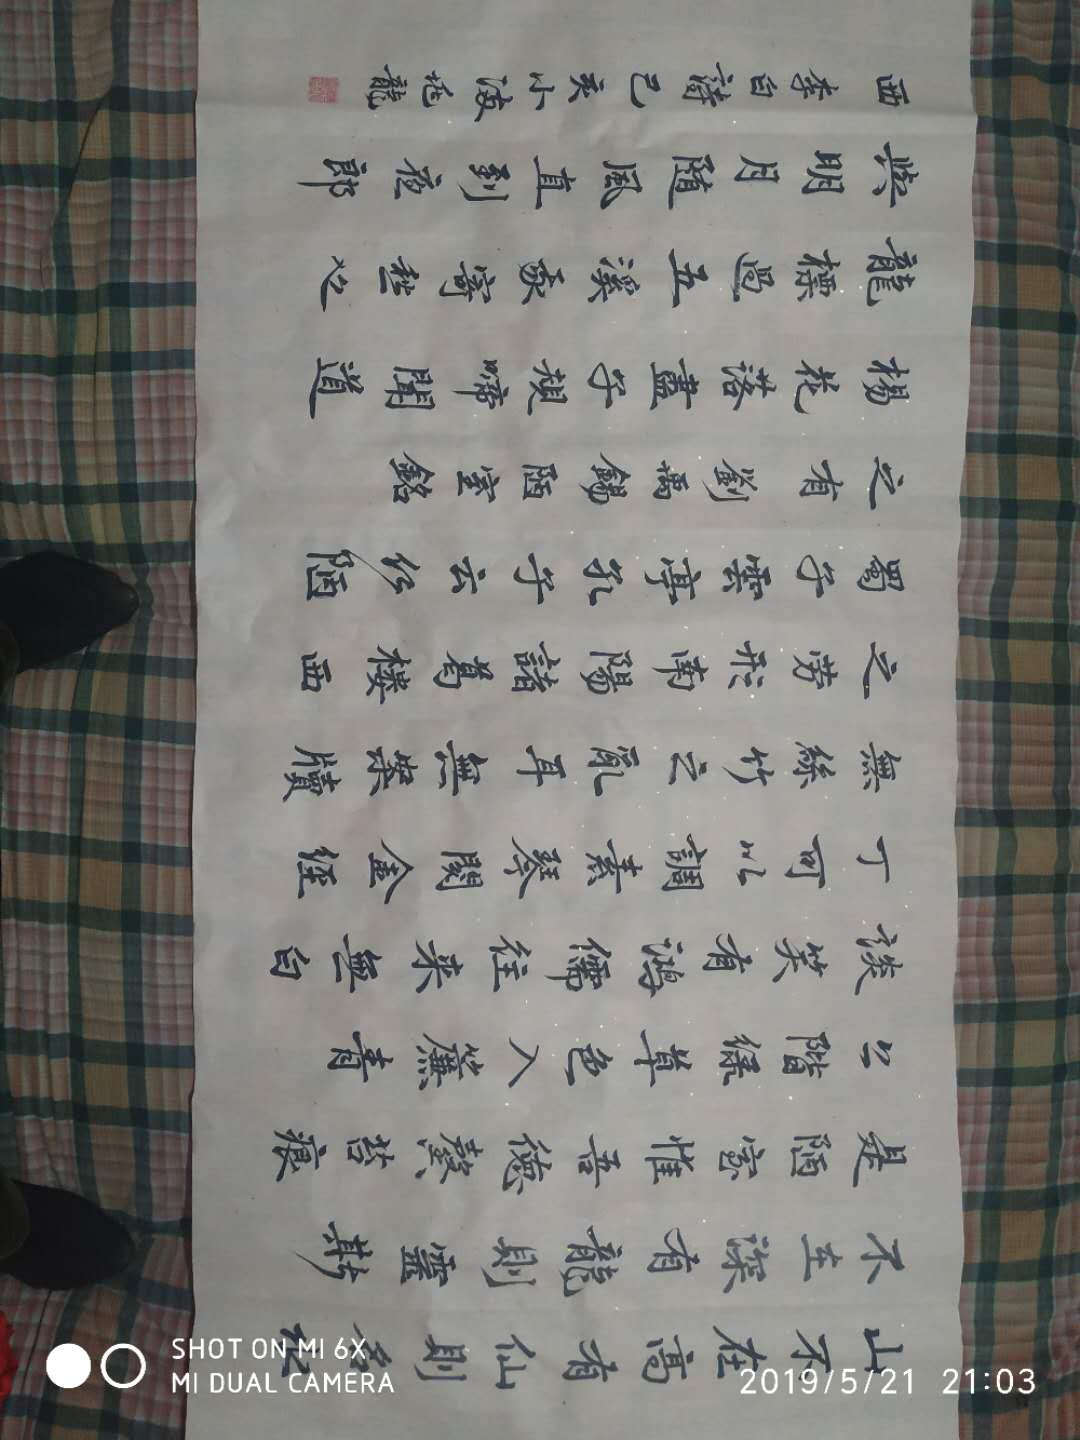 山不在高有仙則名水
不在深有龍則靈斯
是陋室惟吾德馨苔痕
上階綠草色入簾青
談笑有鴻儒往来無白
丁可以調素琴閱金經
無絲竹之亂耳無案牘
之劳形南陽諸葛楼西
蜀子雲亭孔子云何陋
之有劉禹錫陋室銘
楊花落盡子規啼聞道
龍標過五溪我寄愁心
與明月隨風直到夜郎
西李白詩己亥小滿兆龍
SHOT ON MI 6X
MI DUAL CAMERA
2019/5/21 21:03